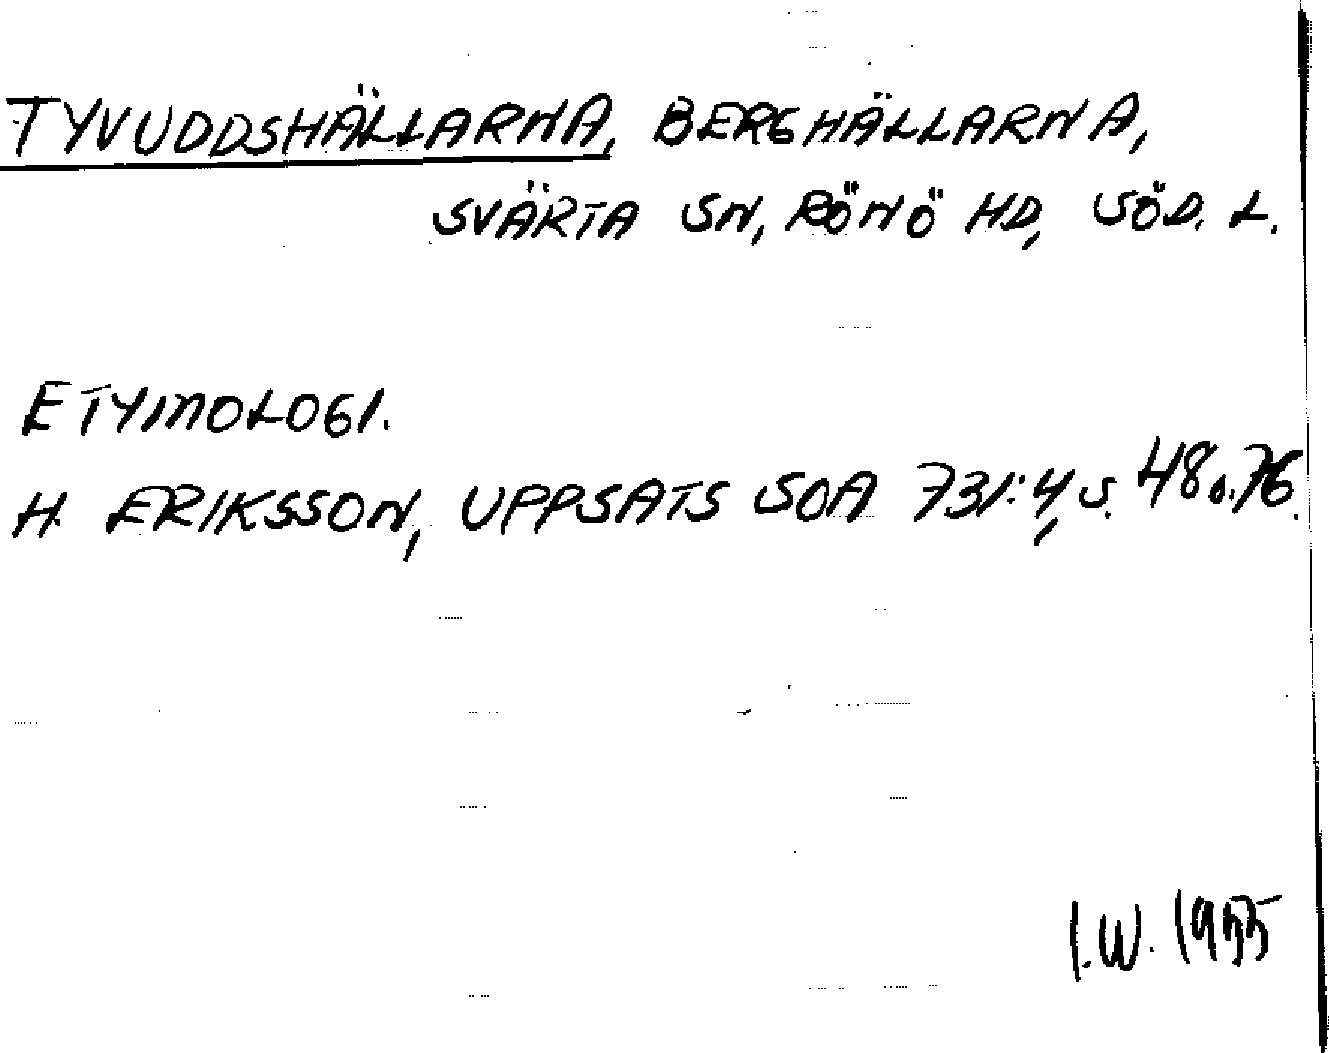 TYVUDDSHÄLLARNA, BERGHÄLLARNA,
SVÄRTA SN, RÖNÖ HD, SÖD. L.
ETYMOLOGI.
H. ERIKSSON, UPPSATS SOA 731:4, S. 48 o. 76.
I.W. 1955